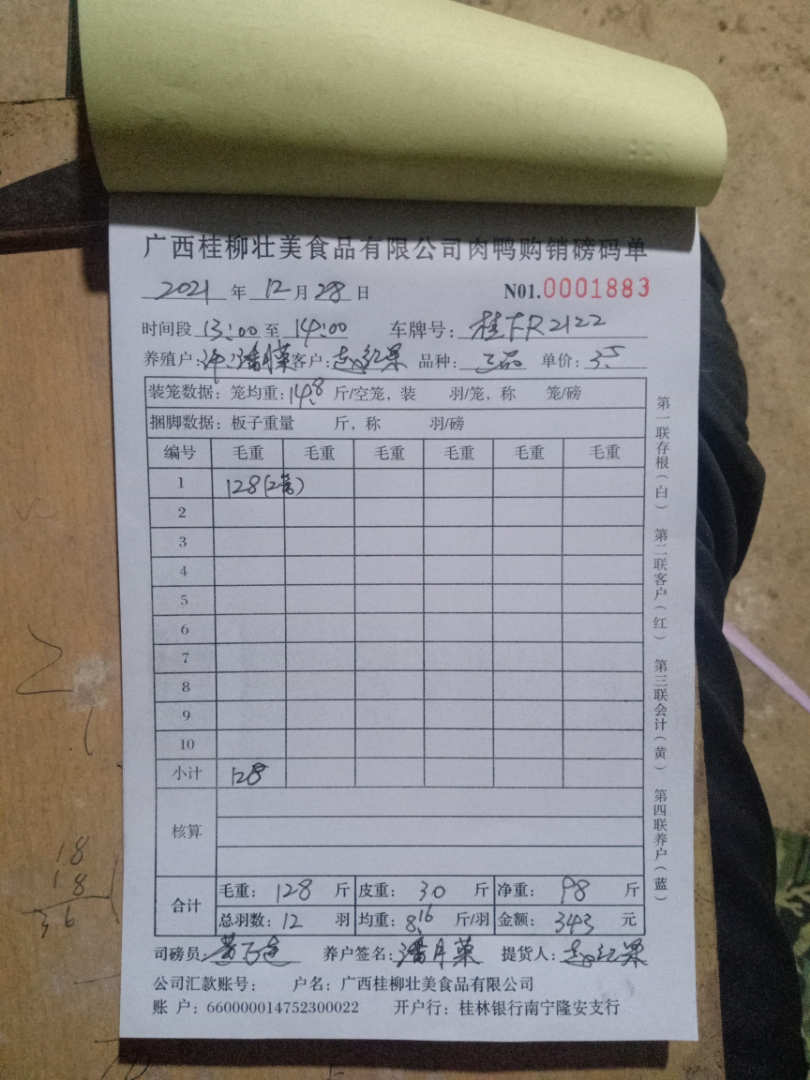 广西桂柳壮美食品有限公司肉鸭购销磅码单
2021 年 12 月 28 日 N01.0001883
时间段 13:00 至 14:00 车牌号: 桂FR2122
养殖户: 潘月菜 客户: 赵红果 品种: 三品 单价: 3.5
装笼数据: 笼均重: 14.8 斤/空笼, 装 羽/笼, 称 笼/磅
捆脚数据: 板子重量 斤, 称 羽/磅
编号 毛重 毛重 毛重 毛重 毛重 毛重
1 128(2笼)
2
3
4
5
6
7
8
9
10
小计 128
核算
合计 毛重: 128 斤 皮重: 30 斤 净重: 98 斤
总羽数: 12 羽 均重: 8.16 斤/羽 金额: 343 元
司磅员 养户签名: 潘月菜 提货人: 赵红果
公司汇款账号: 户名: 广西桂柳壮美食品有限公司
账 户: 660000014752300022 开户行: 桂林银行南宁隆安支行
第一联存根(白) 第二联客户(红) 第三联会计(黄) 第四联养户(蓝)
18
18
36